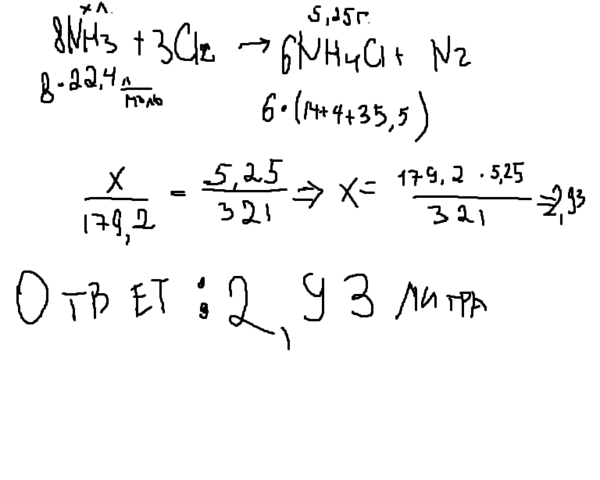 x л. 5,25г.
8NH3 + 3Cl2 → 6NH4Cl + N2
8·22,4 л/моль 6·(14+4+35,5)
x/179,2 = 5,25/321 ⇒ x = 179,2·5,25/321 = 2,93
Ответ: 2,93 литра